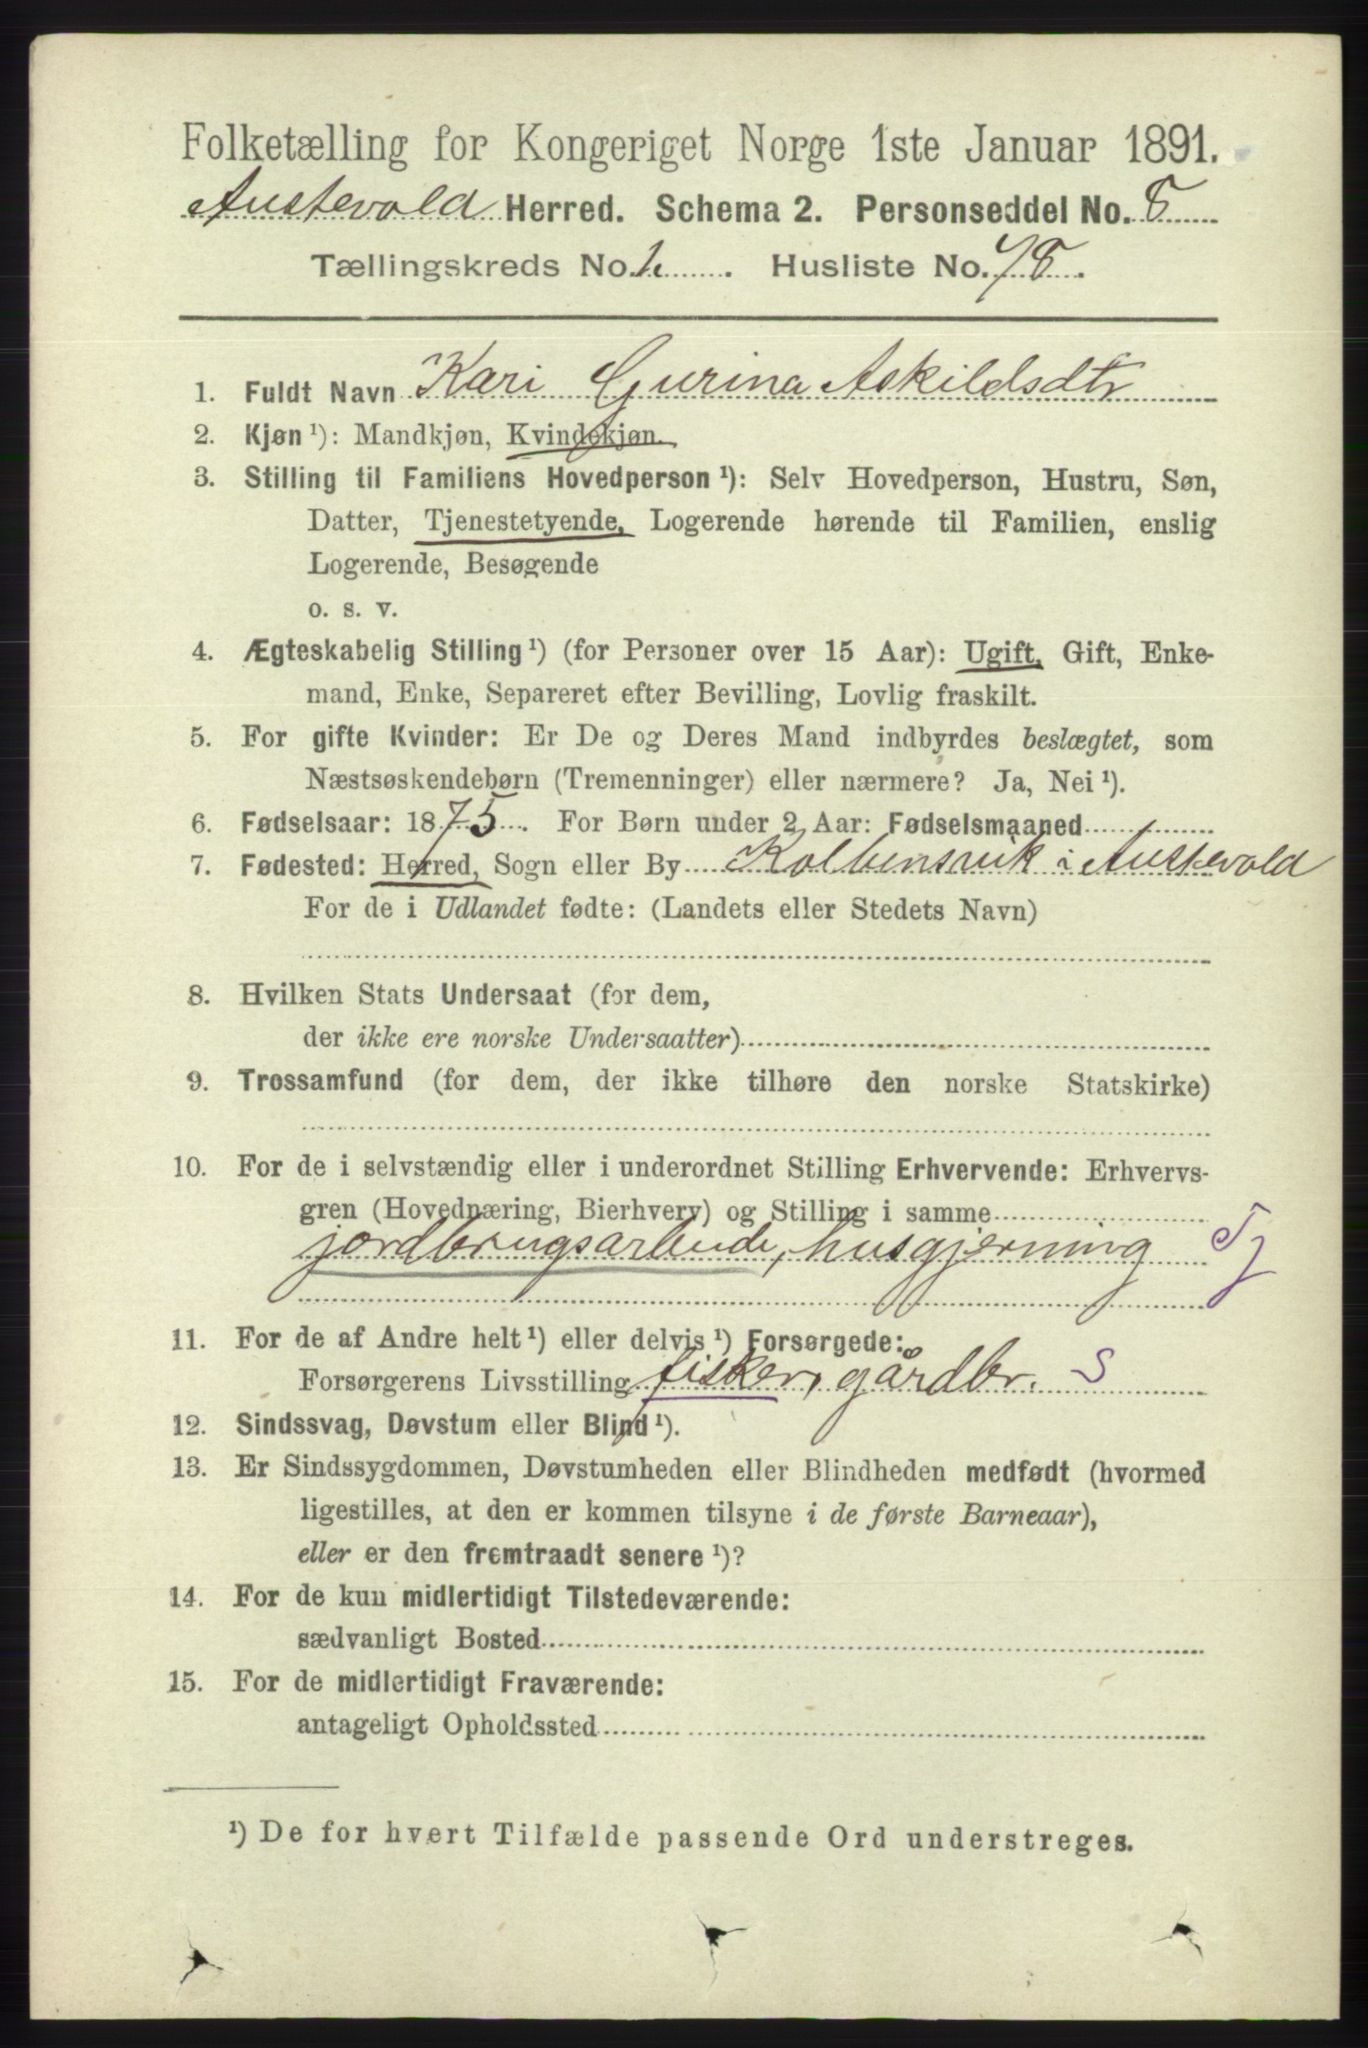 Folketælling for Kongeriget Norge 1ste Januar 1891.
Austevold Herred. Schema 2. Personseddel No. 8
Tællingskreds No. 1. Husliste No. 78.
1. Fuldt Navn Kari Gurina Askildsdtr
2. Kjøn ¹): Mandkjøn, Kvindekjøn.
3. Stilling til Familiens Hovedperson ¹): Selv Hovedperson, Hustru, Søn,
Datter, Tjenestetyende, Logerende hørende til Familien, enslig
Logerende, Besøgende
o. s. v.
4. Ægteskabelig Stilling ¹) (for Personer over 15 Aar): Ugift, Gift, Enke-
mand, Enke, Separeret efter Bevilling, Lovlig fraskilt.
5. For gifte Kvinder: Er De og Deres Mand indbyrdes beslægtet, som
Næstsøskendebørn (Tremenninger) eller nærmere? Ja, Nei ¹).
6. Fødselsaar: 1875. For Børn under 2 Aar: Fødselsmaaned
7. Fødested: Herred, Sogn eller By Kolbensvik i Austevold
For de i Udlandet fødte: (Landets eller Stedets Navn)
8. Hvilken Stats Undersaat (for dem,
der ikke ere norske Undersaatter)
9. Trossamfund (for dem, der ikke tilhøre den norske Statskirke)
10. For de i selvstændig eller i underordnet Stilling Erhvervende: Erhvervs-
gren (Hovednæring, Bierhverv) og Stilling i samme
jordbrugsarbeide, husgjerning Tj
11. For de af Andre helt ¹) eller delvis ¹) Forsørgede:
Forsørgerens Livsstilling fisker, gårdbr. S
12. Sindssvag, Døvstum eller Blind ¹).
13. Er Sindssygdommen, Døvstumheden eller Blindheden medfødt (hvormed
ligestilles, at den er kommen tilsyne i de første Barneaar),
eller er den fremtraadt senere ¹)?
14. For de kun midlertidigt Tilstedeværende:
sædvanligt Bosted
15. For de midlertidigt Fraværende:
antageligt Opholdssted
¹) De for hvert Tilfælde passende Ord understreges.